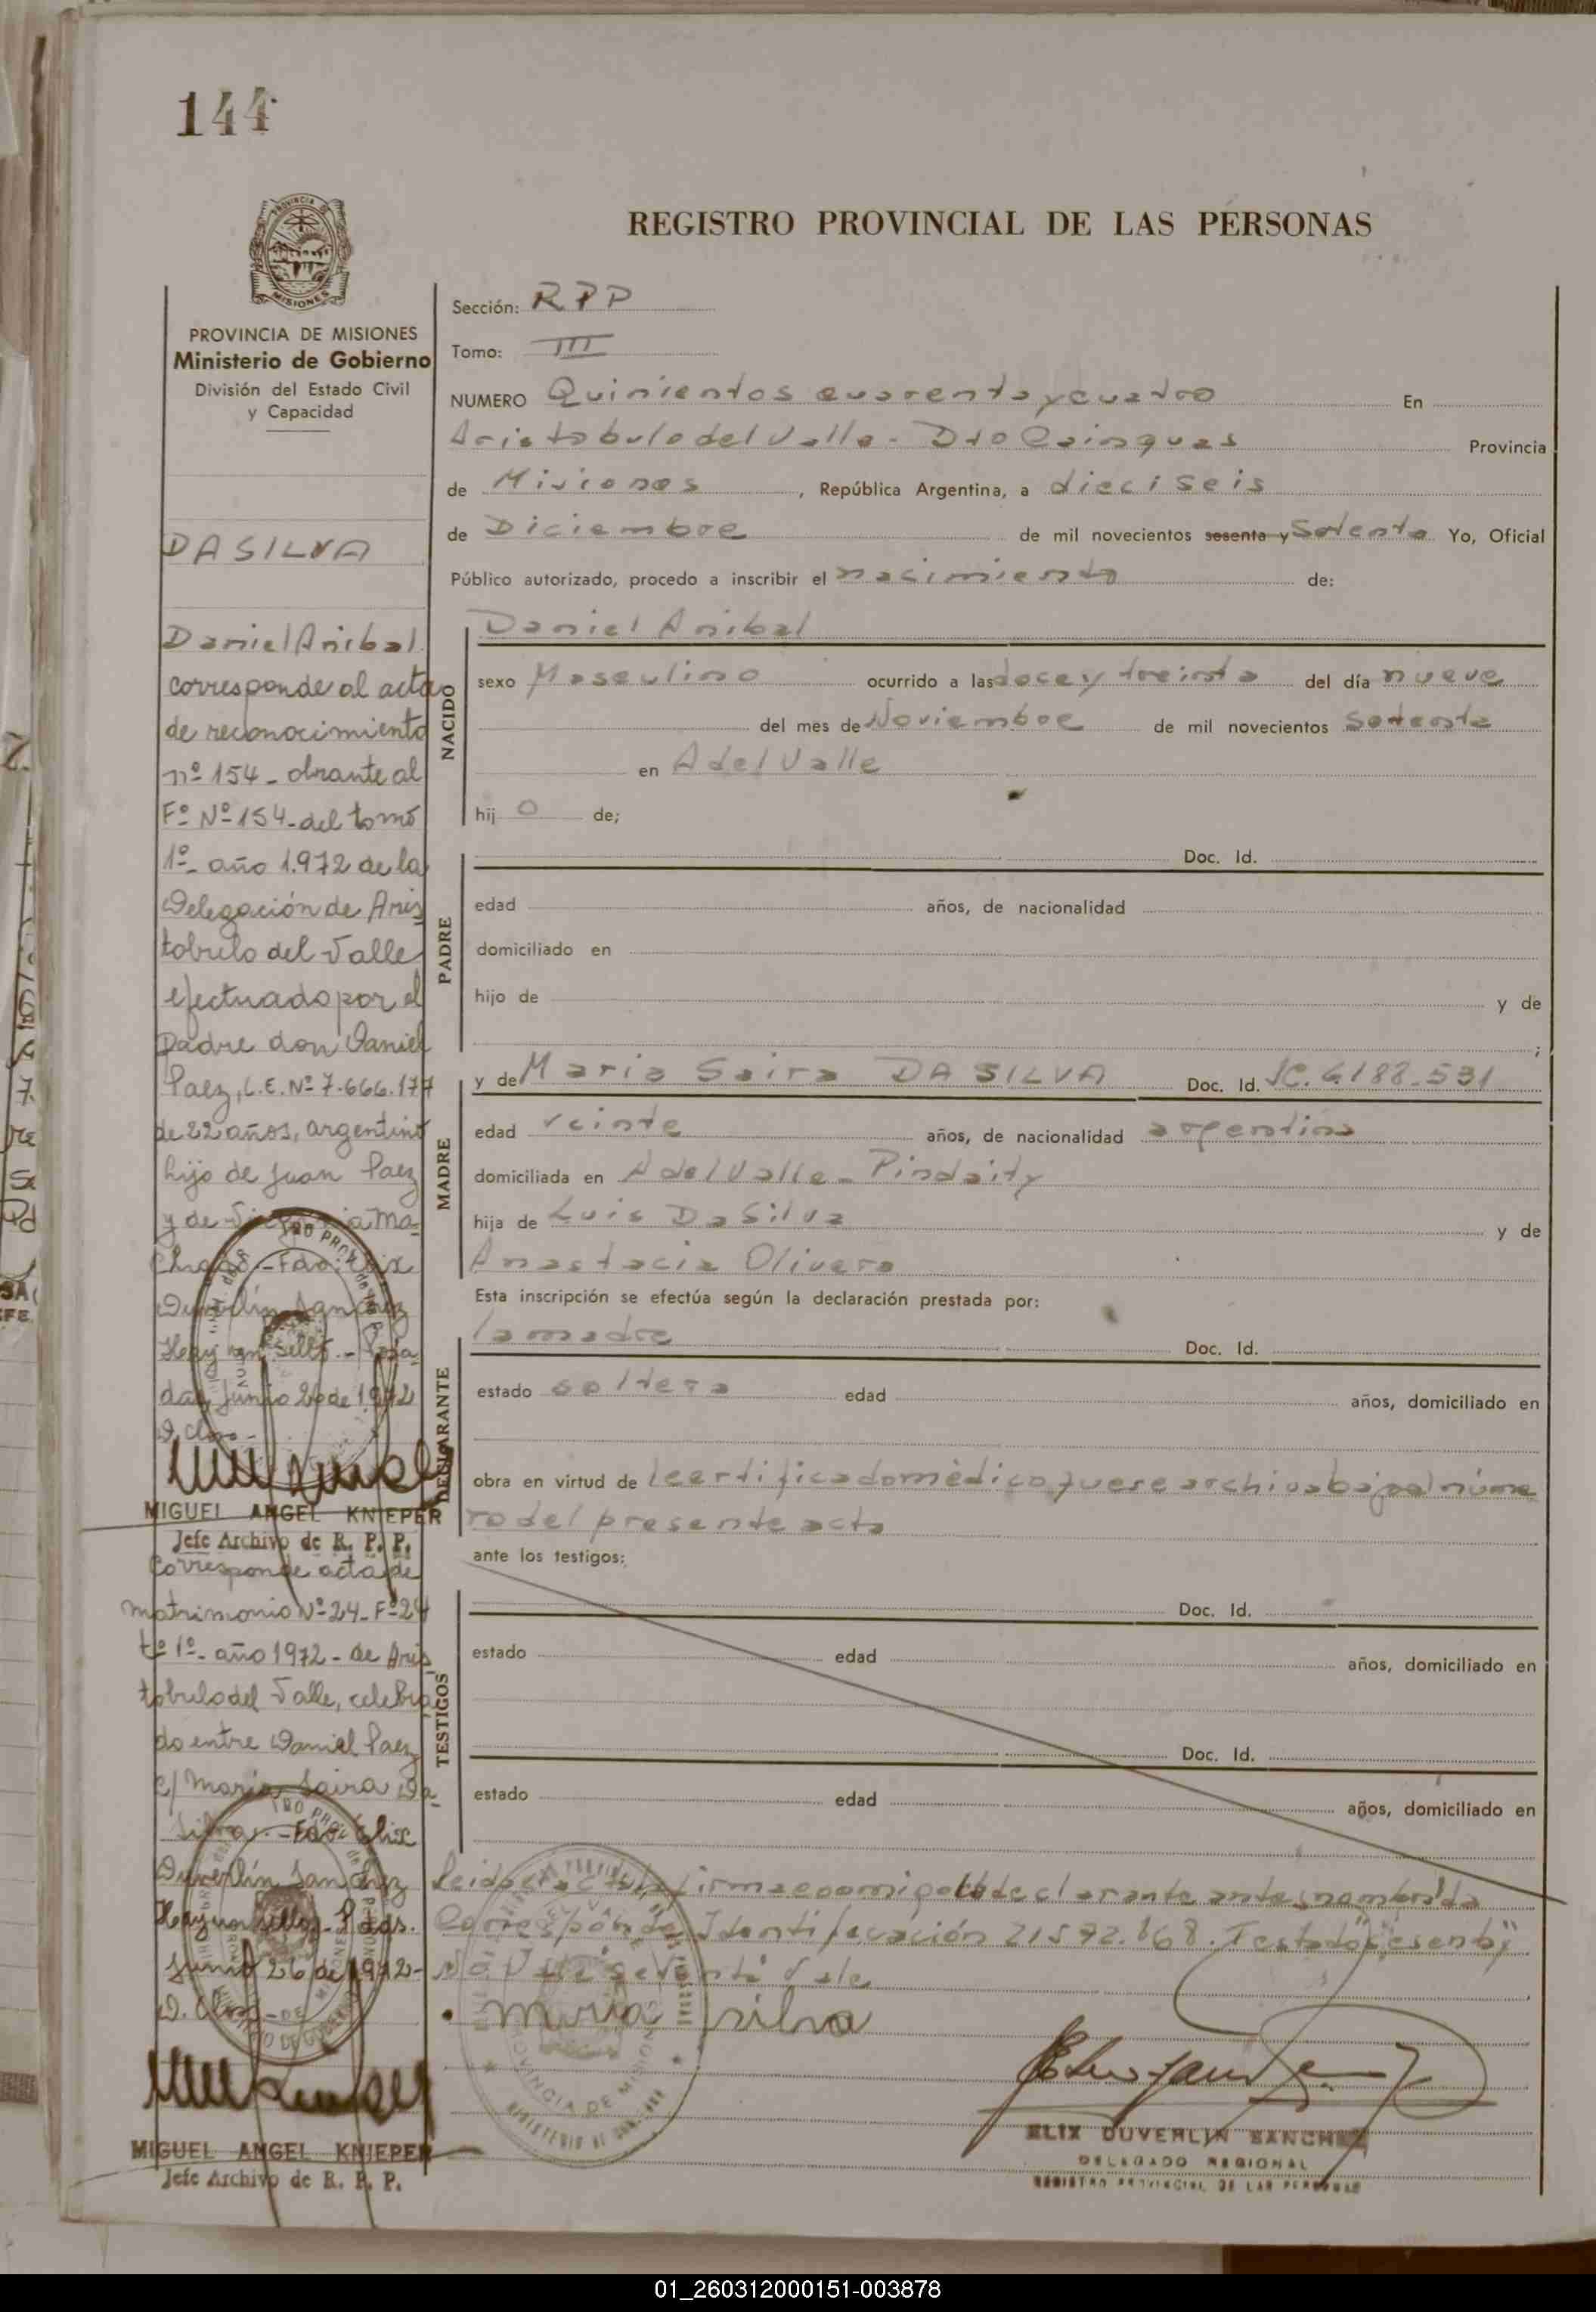 144
REGISTRO PROVINCIAL DE LAS PERSONAS
PROVINCIA DE MISIONES
Ministerio de Gobierno
División del Estado Civil
y Capacidad
DA SILVA
Daniel Anibal
corresponde al acta
de reconocimiento
nº 154 - obrante al
Fº Nº 154 - del tomo
1º - año 1.972 de la
Delegación de Aris
tobulo del Valle
efectuado por el
padre don Daniel
Paez, L.E. Nº 7.666.177
de 22 años, argentino
hijo de Juan Paez
y de Ma-
Duverlin Sanchez
Hay un sello. - Posa
das, Junio 26 de 1972
MIGUEL ANGEL KNIEPER
Jefe Archivo de R. P. P.
Corresponde acta de
matrimonio Nº 24 - Fº 24
tº 1º - año 1972 - de Aris
tobulo del Valle, celebra
do entre Daniel Paez
c/ Maria Saira Da
Silva. - Fdo: Elix
Duverlin Sanchez
Hay un sello - Pdas.
Junio 26 de 1972 -
MIGUEL ANGEL KNIEPER
Jefe Archivo de R. P. P.
Sección: RPP
Tomo: III
NUMERO Quinientos cuarenta y cuatro En
Aristobulo del Valle - Dto Cainguas Provincia
de Misiones, República Argentina, a dieciseis
de Diciembre de mil novecientos sesenta y Setenta Yo, Oficial
Público autorizado, procedo a inscribir el nacimiento de:
NACIDO
Daniel Anibal
sexo Masculino ocurrido a las doce y treinta del día nueve
del mes de Noviembre de mil novecientos setenta
en A del Valle
hij o de;
PADRE
Doc. Id.
edad años, de nacionalidad
domiciliado en
hijo de y de
;
MADRE
y de Maria Saira DA SILVA Doc. Id. 6.188.531
edad veinte años, de nacionalidad argentina
domiciliada en A del Valle - Pindaity
hija de Luis Da Silva y de
Anastacia Olivera
Esta inscripción se efectúa según la declaración prestada por:
DECLARANTE
la madre Doc. Id.
estado soltera edad años, domiciliado en
obra en virtud de certificado médico que se archiva bajo el núme
ro del presente acta
ante los testigos:
TESTIGOS
Doc. Id.
estado edad años, domiciliado en
Doc. Id.
estado edad años, domiciliado en
Leida el acta firma conmigo la declarante antes nombrada
Corresponde Identificación 21572.868.
Vale
Maria silva
ELIX DUVERLIN SANCHEZ
DELEGADO REGIONAL
REGISTRO PROVINCIAL DE LAS PERSONAS
01_260312000151-003878